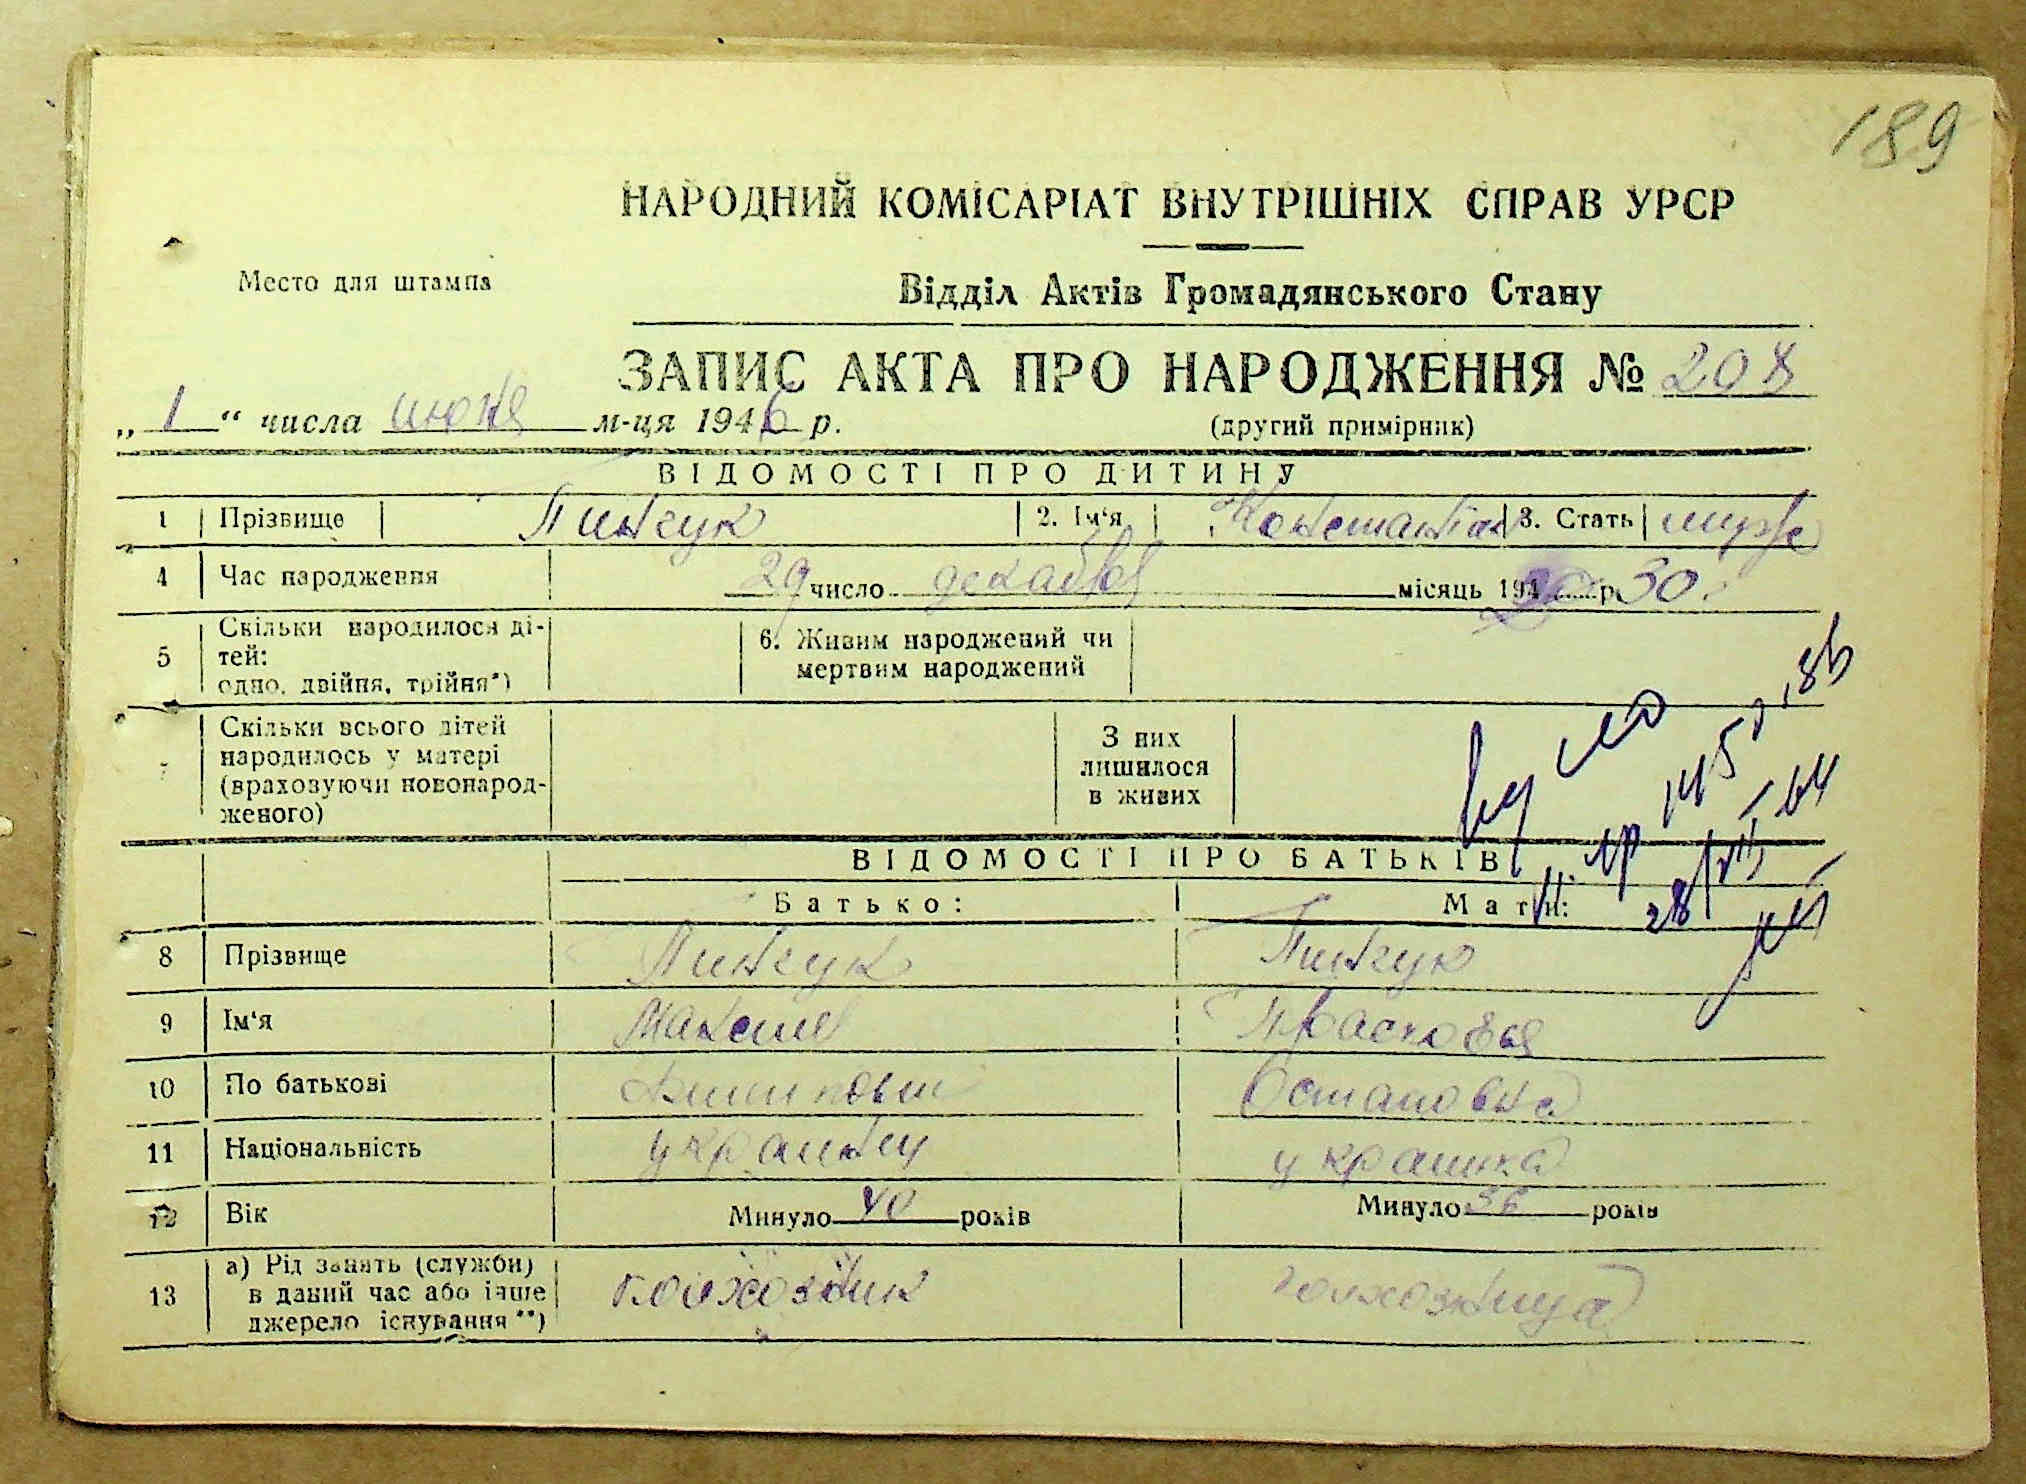 189
НАРОДНИЙ КОМІСАРІАТ ВНУТРІШНІХ СПРАВ УРСР
Место для штампа
Відділ Актів Громадянського Стану
ЗАПИС АКТА ПРО НАРОДЖЕННЯ № 208
„ 1 “ числа июня м-ця 1946 р.
(другий примірник)
ВІДОМОСТІ ПРО ДИТИНУ
1 Прізвище Пинчук 2. Ім‘я Константин 3. Стать муж
4 Час народження 29 число декабря місяць 194 р. 30
5 Скільки народилося ді-
тей:
одно, двійня, трійня*)
6. Живим народжений чи
мертвим народжений
7 Скільки всього дітей
народилось у матері
(враховуючи новонарод-
женого)
З них
лишилося
в живих
ВІДОМОСТІ ПРО БАТЬКІВ
Батько: Мати:
8 Прізвище Пинчук Пинчук
9 Ім‘я Максим Прасковья
10 По батькові Остаповна
11 Національність украинец украинка
12 Вік Минуло 40 років Минуло 36 років
13 а) Рід занять (служби)
в даний час або інше
джерело існування**)
колхозник колхозница